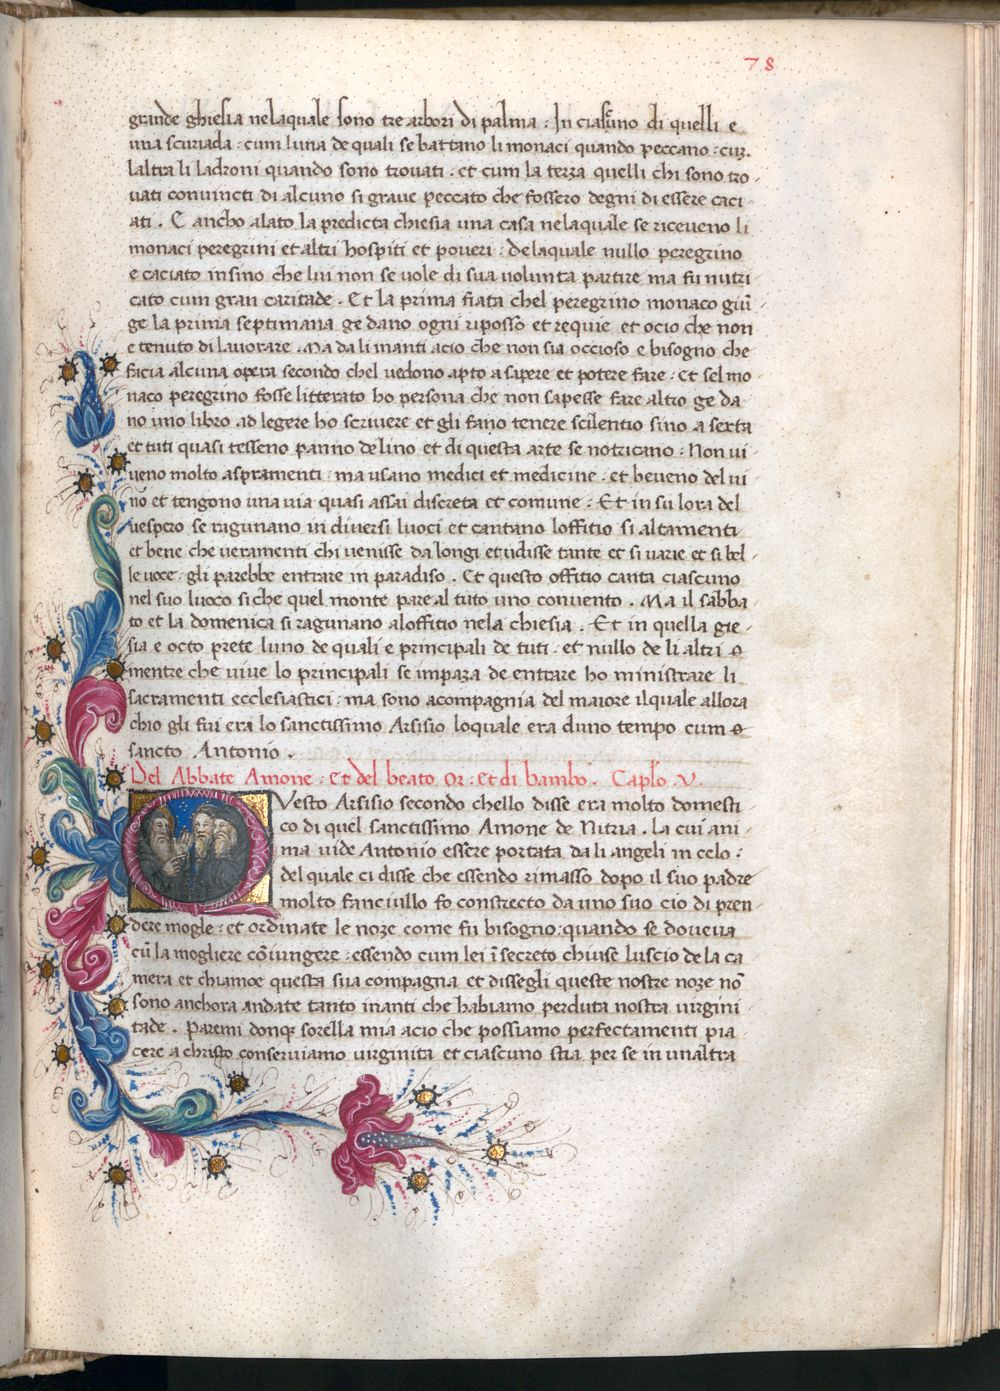 78
grande ghiesia nelaquale sono tre arbori di palma : In ciascūno di quelli e
una scuriada : cum luna de quali se battano li monaci quando peccano : cuꝫ.
laltra li ladroni quando sono trovati . et cum la terza quelli chi sono tro-
uati conuincti di alcuno si graue peccato che fossero degni di essere caci-
ati . E ancho alato la predicta chiesia una casa nelaquale se riceueno li
monaci peregrini et altri hospiti et poueri : delaquale nullo peregrino
e caciato insino che lui non se uole di sua uolunta partire ma fu nutri-
cato cum gran caritade . Et la prima fiata chel peregrino monaco giū-
ge la prima septimana ge dano ogni riposso et requie et ocio che non
e tenuto di lauorare . Ma da li inanti acio che non sia occioso e bisogno che
facia alcuna opera secondo chel uedono apto a sapere et potere fare : Et sel mo-
naco peregrino fosse litterato ho persona che non sapesse fare altro ge da-
no uno libro ad legere ho scriuere et gli fano tenere scilentio sino a sexta
et tuti quasi tesseno panno de lino et di questa arte se notricano : Non ui-
ueno molto aspramenti : ma usano medici et medicine . et beueno del ui-
no et tengono una uia quasi assai discreta et comune : Et in su lora del
uespero se ragunano in diuersi luoci et cantano loffitio si altamenti
et bene che ueramenti chi uenisse da longi et udisse tante et si uarie et si bel-
le uoce : gli parebbe entrare in paradiso . Et questo offitio canta ciascuno
nel suo luoco si che quel monte pare al tuto uno conuento . Ma il sabba-
to et la domenica si ragunano aloffitio nela chiesia . Et in quella gie-
sia e octo prete luno de quali e principali de tuti . et nullo de li altri
mentre che uiue lo principali se impaza de entrare ho ministrare li
sacramenti ecclesiastici : ma sono acompagnia del maiore ilquale allora
chio gli fui era lo sanctissimo Arsisio loquale era duno tempo cum
sancto Antonio .
Del Abbate Amone : et del beato Or : et di bambo . Caplo . V .
Vesto Arsisio secondo chello disse era molto domesti-
co di quel sanctissimo Amone de Nitria . la cui ani-
ma uide Antonio essere portata da li angeli in celo :
del quale ci disse che essendo rimasso dopo il suo padre
molto fanciullo fo constrecto da uno suo cio di pren-
dere mogle : et ordinate le noze come fu bisogno : quando se doueua
cū la mogliere cōiungere : essendo cum lei ī secreto chiuse luscio de la ca-
mera et chiamoe questa sua compagna et dissegli queste nostre noze nō
sono anchora andate tanto inanti che habiamo perduta nostra uirgini-
tade . Paremi donqꝫ sorella mia acio che possiamo perfectamenti pia-
cere a christo conseruiamo uirginita et ciascuno stia per se in unaltra